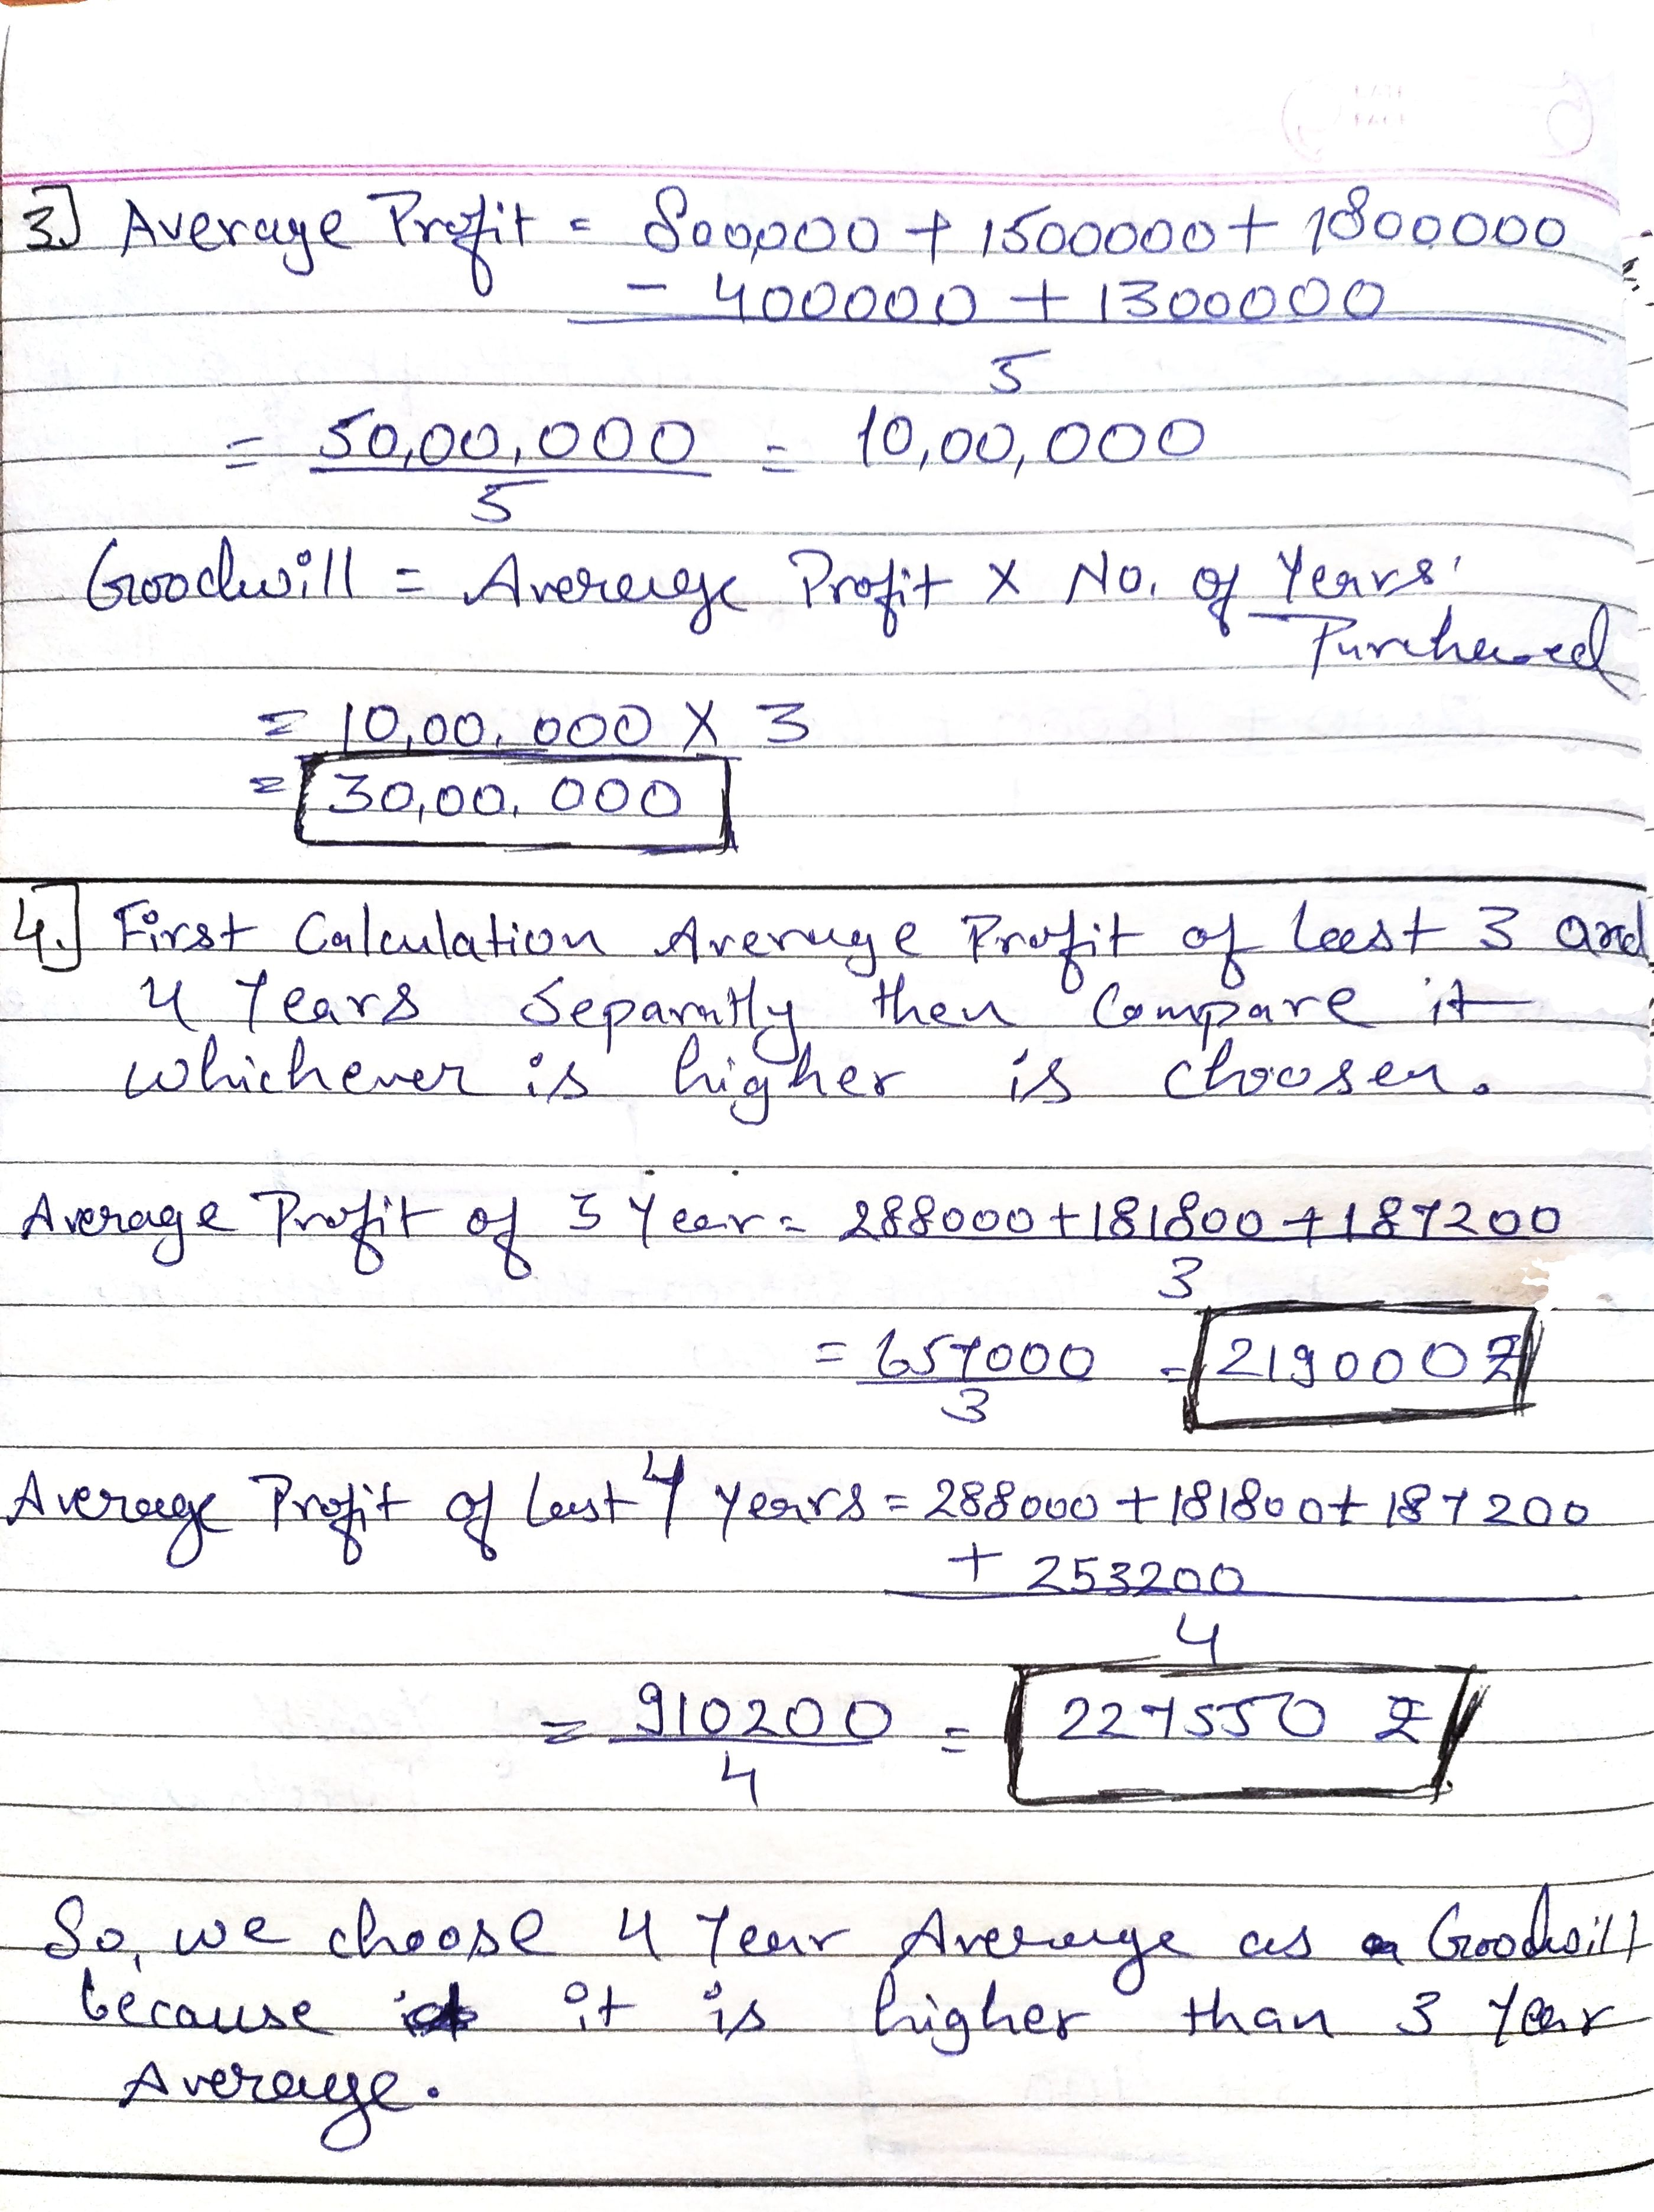 3.] Average Profit = 800,000 + 1500000 + 1800000
- 400000 + 1300000
5
= 50,00,000 = 10,00,000
5
Goodwill = Average Profit X No. of Years'
Purchased
= 10,00,000 X 3
= 30,00,000
4.] First Calculation Average Profit of last 3 and
4 Years Separatly then Compare it
whichever is higher is choosen.
Average Profit of 3 Year = 288000 + 181800 + 187200
3
= 657000 = 219000 ₹
3
Average Profit of last 4 years = 288000 + 181800 + 187200
+ 253200
4
= 910200 = 227550 ₹
4
So, we choose 4 Year Average as a Goodwill
because it is higher than 3 Year
Average.